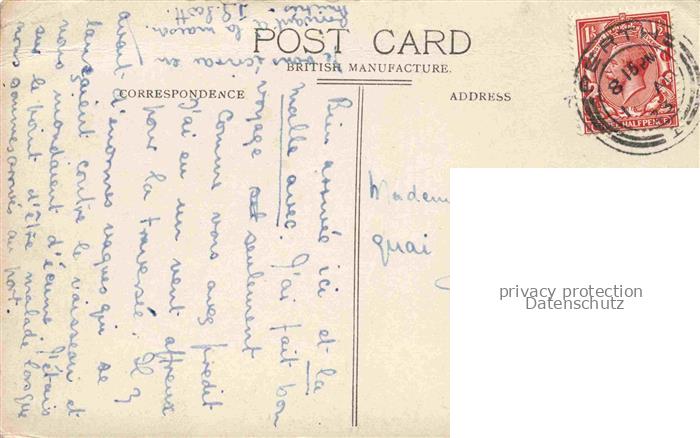 POST CARD
BRITISH MANUFACTURE.
CORRESPONDENCE
ADDRESS
HALFPENCE
PERTH
8.15 PM
Bien arrivée ici et la
malle avec. J'ai fait bon
voyage seulement
comme vous avez prédit
j'ai eu un vent affreux
pour la traversée. Il y
avait d'énormes vagues qui se
lançaient contre le vaisseau et
nous inondaient d'écume. J'étais
sur le point d'être malade lorsque
nous sommes arrivés au port.
Je vous écrirai en
la maison.
J.S. Scott.
Madem
quai
privacy protection
Datenschutz